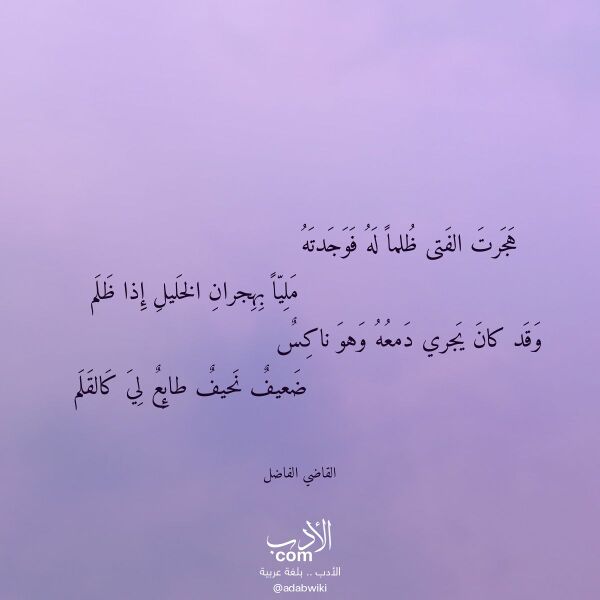 هَجَرتَ الفَتى ظُلماً لَهُ فَوَجَدتَهُ
مَلِيّاً بِهِجرانِ الخَليلِ إِذا ظَلَم
وَقَد كانَ يَجري دَمعُهُ وَهوَ ناكِسٌ
ضَعيفٌ نَحيفٌ طايِعٌ لِيَ كَالقَلَم
القاضي الفاضل
الأدب
.com
الأدب .. بلغة عربية
@adabwiki